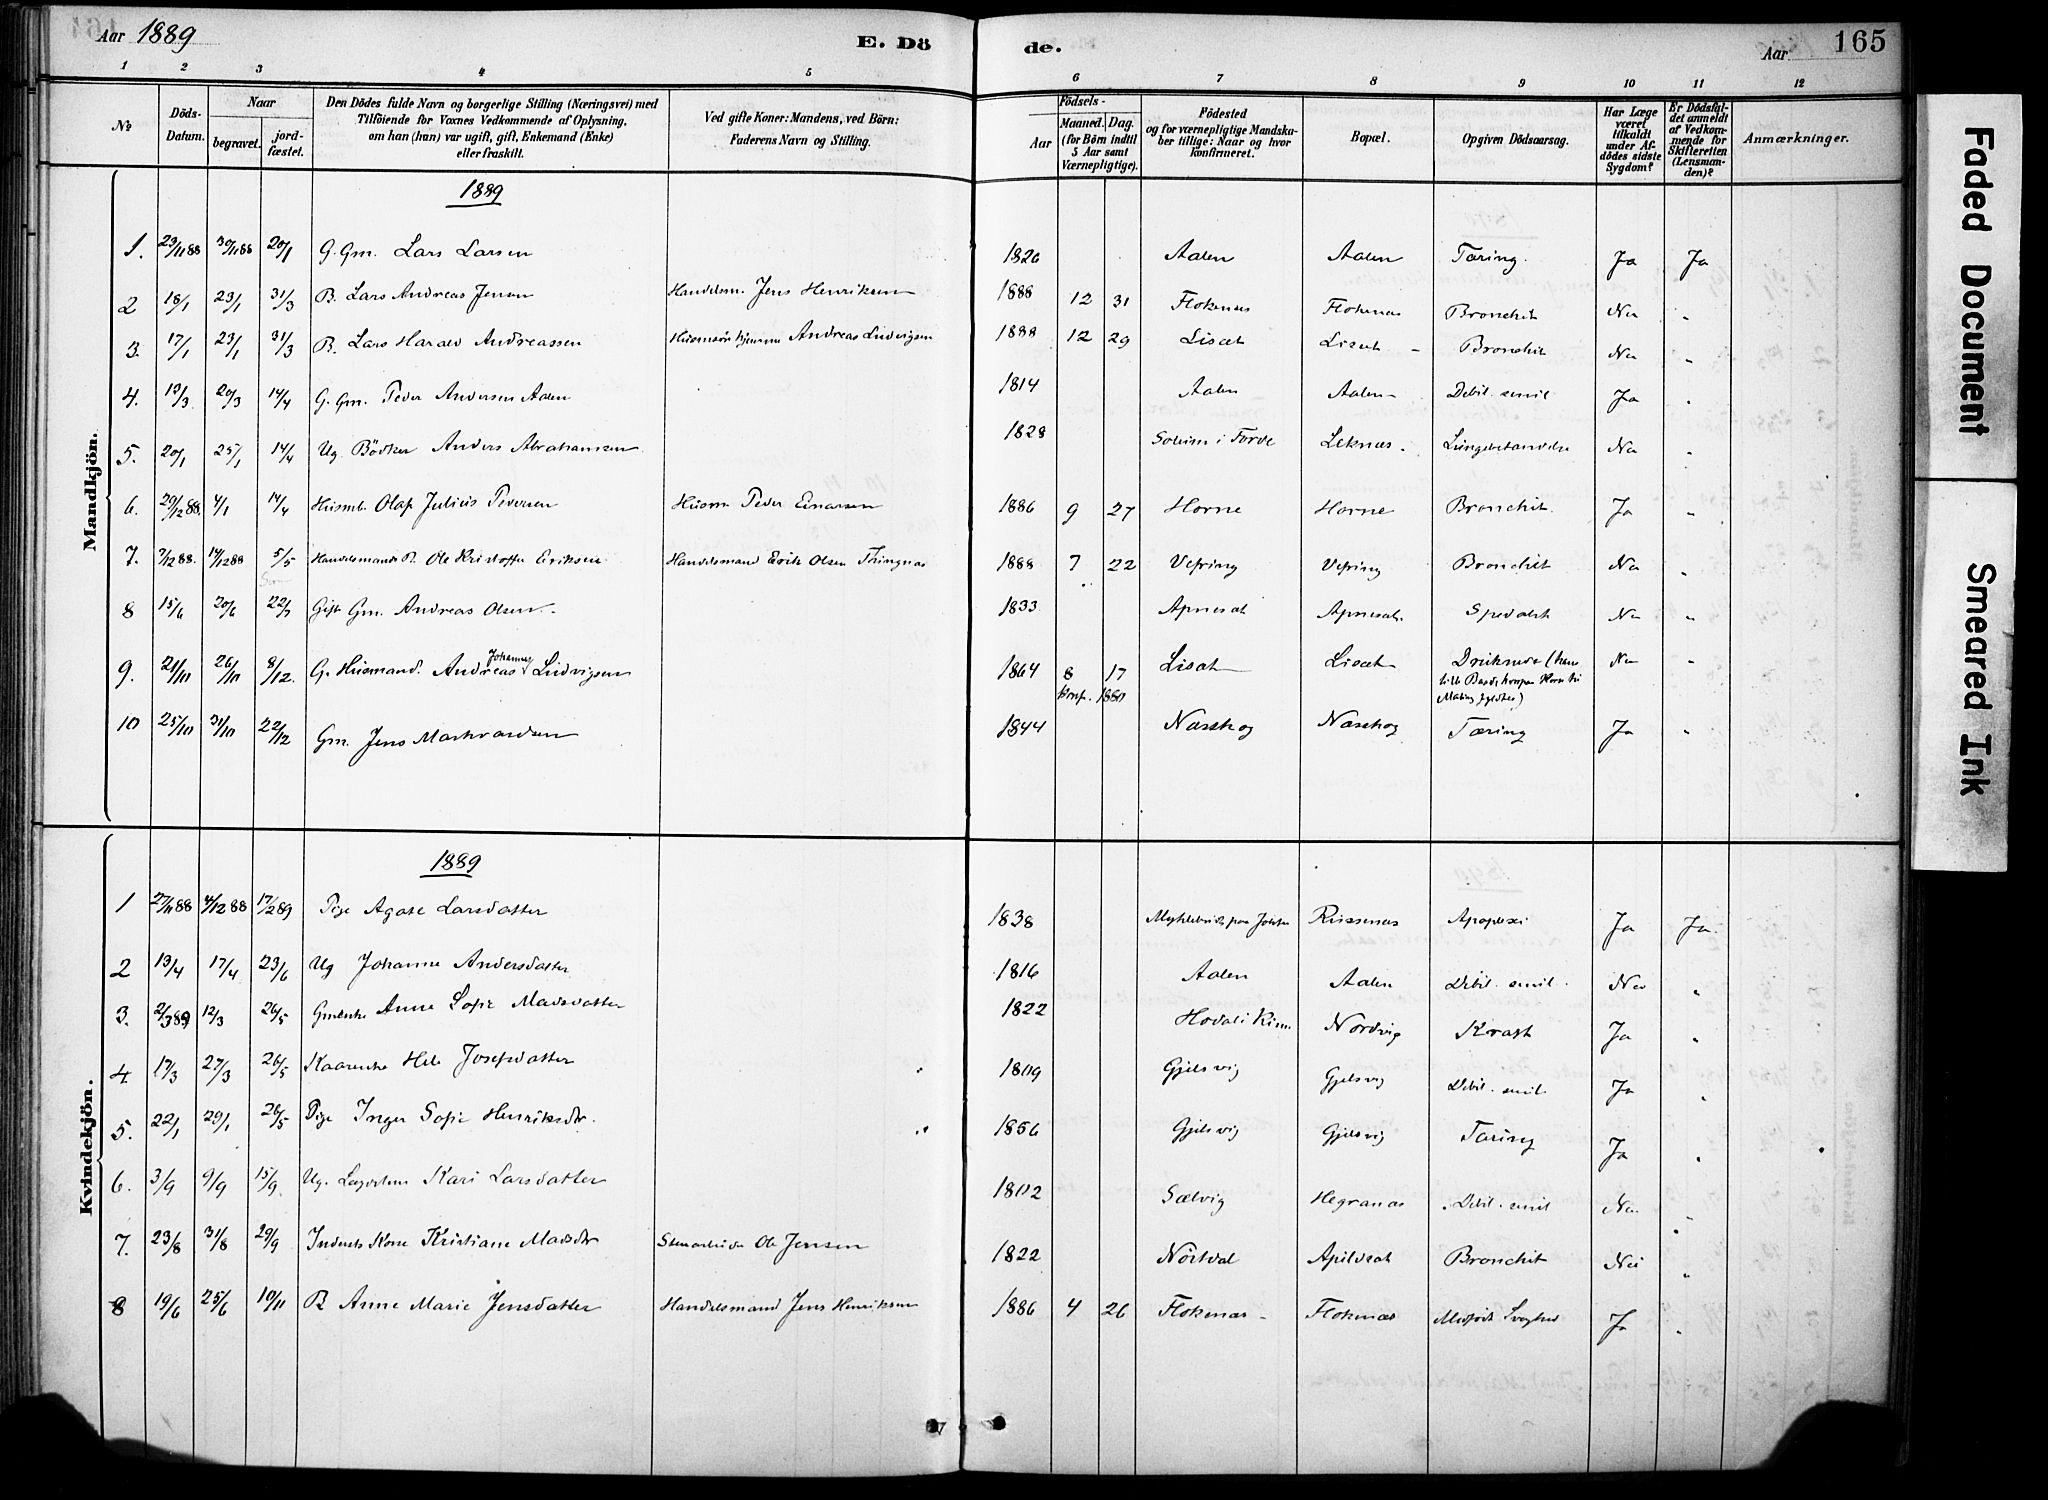 Aar 1889 E. Dö de. Aar 165
1 2 3 4 5 6 7 8 9 10 11 12
№
Döds-Datum.
Naar
begravet.
jord-fæstet.
Den Dödes fulde Navn og borgerlige Stilling (Næringsvei) med
Tilföiende for Voxnes Vedkommende af Oplysning,
om han (hun) var ugift, gift, Enkemand (Enke)
eller fraskilt.
Ved gifte Koner: Mandens, ved Börn:
Faderens Navn og Stilling.
Födsels-
Aar
Maaned. Dag.
(for Börn indtil
5 Aar samt
Værnepligtige).
Födested
og for værnepligtige Mandska-
ber tillige: Naar og hvor
konfirmeret.
Bopæl.
Opgiven Dödsaarsag.
Har Læge
været
tilkaldt
under Af-
dödes sidste
Sygdom?
Er Dödsfal-
det anmeldt
af Vedkom-
mende for
Skifteretten
(Lensman-
den)?
Anmærkninger.
Mandkjön.
1889
1. 23/11 88 30/11 88 20/1 G. Gm. Lars Larsen 1826 Aalen Aalen Tæring. Ja Ja
2 18/1 23/1 31/3 B. Lars Andreas Jensen Handelsm. Jens Henriksen 1888 12 31 Flokenæs Flokenæs Bronchit Nei "
3. 17/1 23/1 31/3 B. Lars Harald Andreassen Andreas Ludvigsen 1888 12 29 Liset Liset Bronchit Nei "
4. 13/3 20/3 14/4 G. Gm. Peder Andersen Aalen 1814 Aalen Aalen Debil. senil Ja "
5. 20/1 25/1 14/4 Ug. Bödker Anders Abrahamsen 1828 Soleim i Förde Leknæs. Lungebetændelse Nei "
6. 29/12 88. 4/1 14/4 Husmb. Olaf Julius Pedersen Husm Peder Einarsen 1886 9 27 Horne Horne Bronchit. Ja "
7. 7/12 88. 14/12 88 5/5 Handelsmands B. Ole Kristoffer Eriksen Handelsmand Erik Olsen Thingnæs 1888 7 22 Vefring Vefring Bronchit Nei "
8 15/6 20/6 22/7 Gift Gm. Andreas Olsen 1833 Apneset Apneset. Spedalsk Nei "
9. 21/10 26/10 8/12. G. Husmand. Andreas Johannes Ludvigsen 1864 8 17 Liset Liset Druknede Nei "
Konf. 1880
10 25/10 31/10 22/12 Gm. Jens Markvardsen 1844 Naeskog Naeskog Tæring Ja "
Kvindekjön.
1889
1 27/11 88 4/12 88 17/2 89 Pige Agate Larsdatter 1838 Russenæs Apoplexi Ja Ja.
2 13/4 17/4 23/6 Ug Johanne Andersdatter 1816 Aalen Aalen Debil. senil. Nei "
3. 2/3 89 12/3 26/5 Gmenke Anne Sofie Madsdatter 1822 Hovdal i Kinn Nordvig Kræft Ja "
4. 17/3 27/3 26/5 Kaarenke Josefsdatter 1809 Gjelsvig Gjelsvig Debil. senil Ja "
5. 22/1 29/1 26/5 Pige Inger Sofie Henriksdr. 1856 Gjelsvig Gjelsvig Tæring Ja "
6. 3/9 9/9 15/9 Ug. Kari Larsdatter 1802 Sælvig Hegrenæs Debil. senil Nei "
7. 23/8 31/8 29/9 Inderts Kone Kristiane Madsdr Stenarbeider Ole Jensen 1822 Nörtdal Apildset Bronchit Nei "
8 19/6 25/6 10/11 B Anne Marie Jensdatter Handelsmand Jens Henriksen 1886 4 26 Flokenæs Flokenæs Medfödt Svaghed Ja "
Faded Document
Smeared Ink